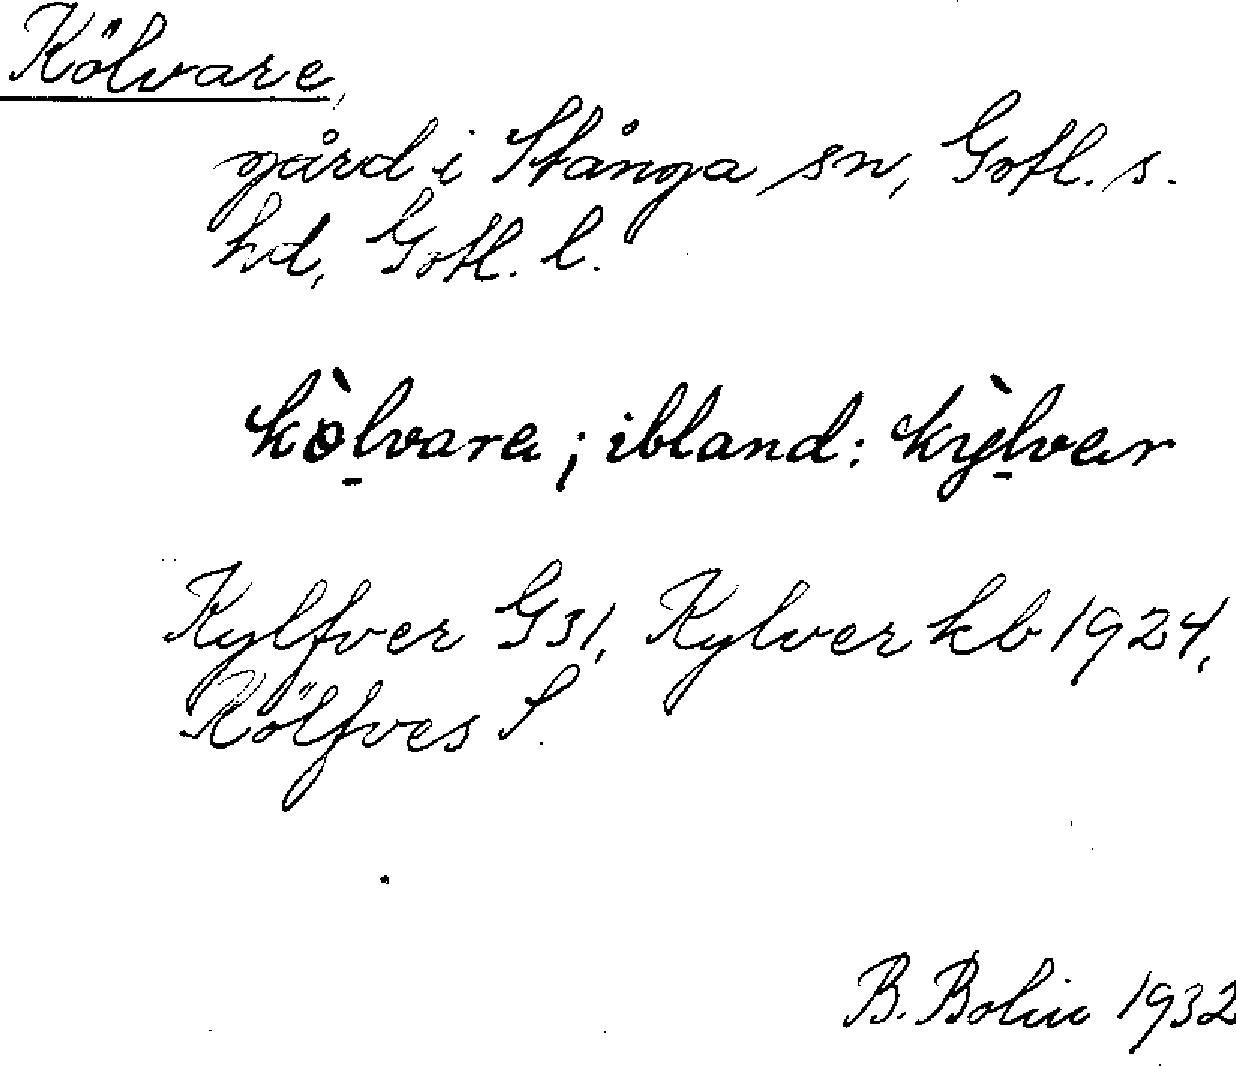 Kölvare,
gård i Stånga sn, Gotl. s.
hd, Gotl. l.
kòlvara; ibland: kỳlvar
Kylfver G31, Kylver kb 1924,
Kölfves S.
B. Bolin 1932